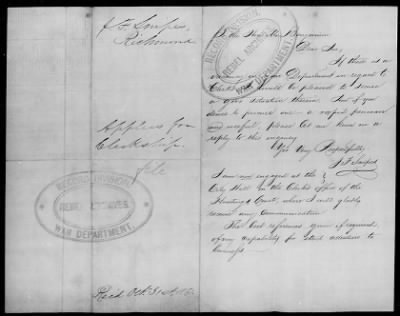 J F Soupes,
Richmond
Applies for
Clerkship.
file
RECORD DIVISION
REBEL ARCHIVES
WAR DEPARTMENT
Rec'd Oct. 31st
To the Hon. Mr. Benjamin
Dear Sir,
If there is a
vacancy in your Department in regard to
Clerkship I would be pleased to secure
a situation therein. And if you
desire to procure one - a rapid penman
and useful, please let me know in a
reply to this inquiry
Yrs Very Respectfully
RECORD DIVISION
REBEL ARCHIVES
WAR DEPARTMENT
I am now engaged at the
City Hall in the Clerks office of the
Hustings Court, where I will gladly
receive any communication.
The best references given if required
of my capability for strict attention to
business